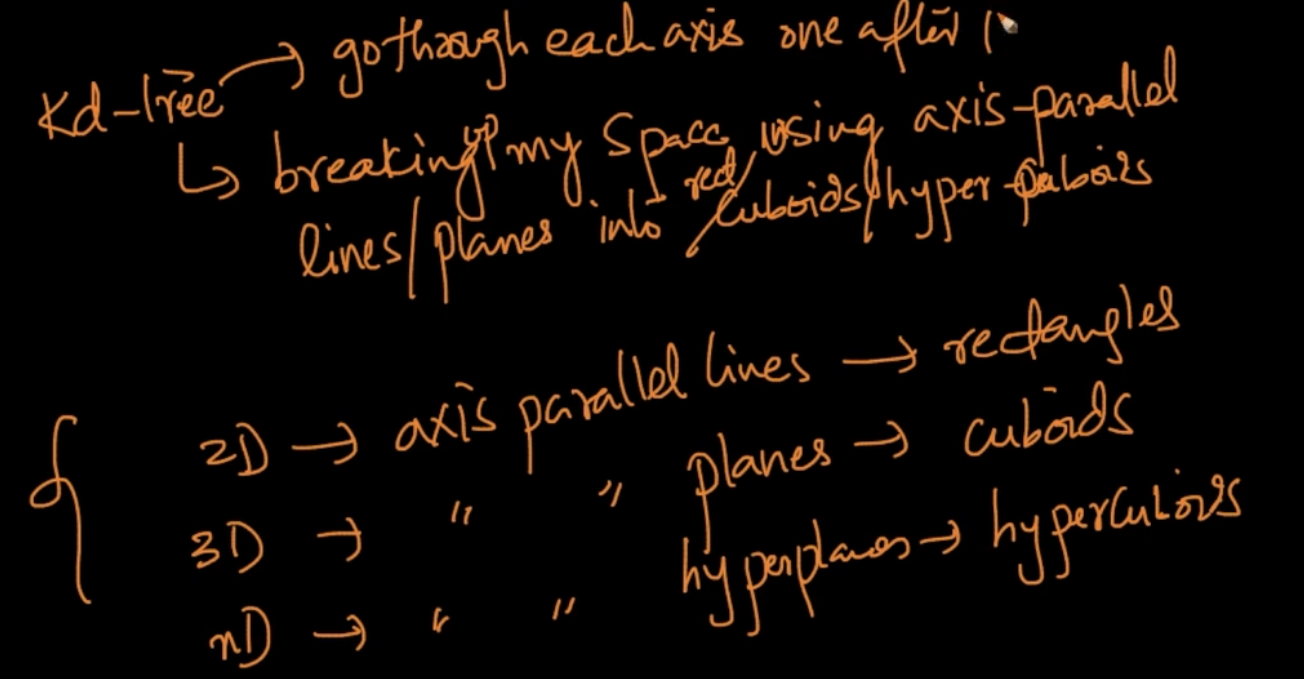 Kd-tree → go through each axis one after
↳ breaking up my space using axis-parallel
lines/planes into rect/cuboids/hyper-cuboids
2D → axis parallel lines → rectangles
3D → " " planes → cuboids
nD → " " hyperplanes → hypercuboids